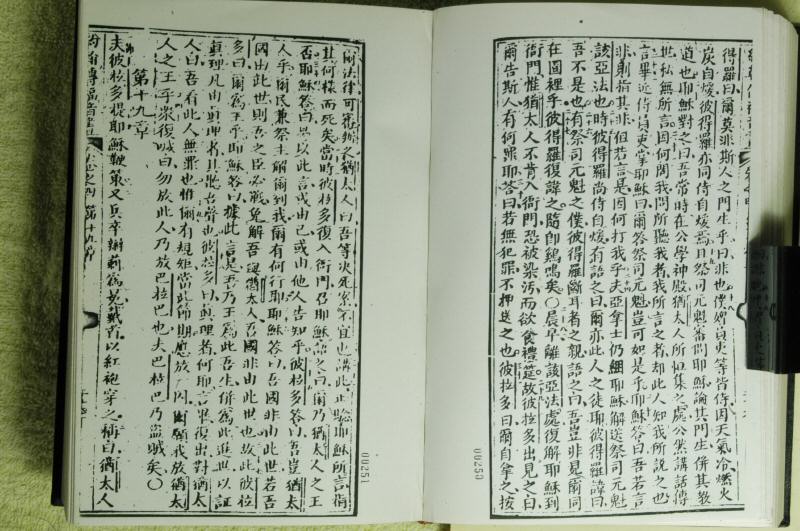 得羅曰爾莫非斯人之門生乎曰非也僕婢員吏等皆侍因天氣冷燃火
炭自煖彼得羅亦同侍自煖焉且祭司元魁審問耶穌論其門生併其教
道也耶穌對之曰吾常時在公學神殿猶太人所恒集之處公然講話傳
世私無所言因何問我問所聽我者我所言之者却此人知我所說之也
言畢近侍員吏掌耶穌曰爾答祭司元魁豈可如是乎耶穌答曰吾若言
非則指其非但若言是因何打我乎夫亞拿士仍綑耶穌解送祭司元魁
該亞法也時彼得羅尚侍自煖有語之曰爾亦此人之徒耶彼得羅諱曰
吾不是也有祭司元魁之僕彼得羅斷耳者之親語之曰吾豈非見爾同
在園裡乎彼得羅復諱之隨即鷄鳴矣〇晨早離該亞法處復解耶穌到
衙門惟猶太人不肯入衙門恐被染污而欲食禮筵故彼拉多出見之曰
爾告斯人有何罪耶答曰若無犯罪不押送之也彼拉多曰爾自拿之按
爾法律可審辦之猶太人曰吾等決死案不宜也講此正驗耶穌所言指
其何樣而死矣當時彼拉多復入衙門召耶穌語之曰爾乃猶太人之王
否耶穌答曰以此言或由己或由他人告知乎彼拉多答曰吾豈猶太
人乎爾民兼祭主解爾到我爾有何行耶耶穌答曰吾國非由此世若吾
國由此世則吾之臣必戰免解吾與猶太人吾國非由此世也故此彼拉
多曰爾為王乎耶穌答曰據此言是吾乃王為此吾生併為此進世以証
真理凡由真理者其聽吾聲也彼拉多曰真理者何耶言畢復出對猶太
人曰吾看此人無罪也惟爾有規矩當此節期應放一囚爾願我放猶太
人之王乎衆復喊曰勿放此人乃放巴拉巴也夫巴拉巴乃盜賊矣〇
第十九章
夫彼拉多提耶穌鞭策又兵卒辮莿為冕戴首以紅袍穿之稱曰猶太人
約翰傳福音書 第十九章
00250
00251